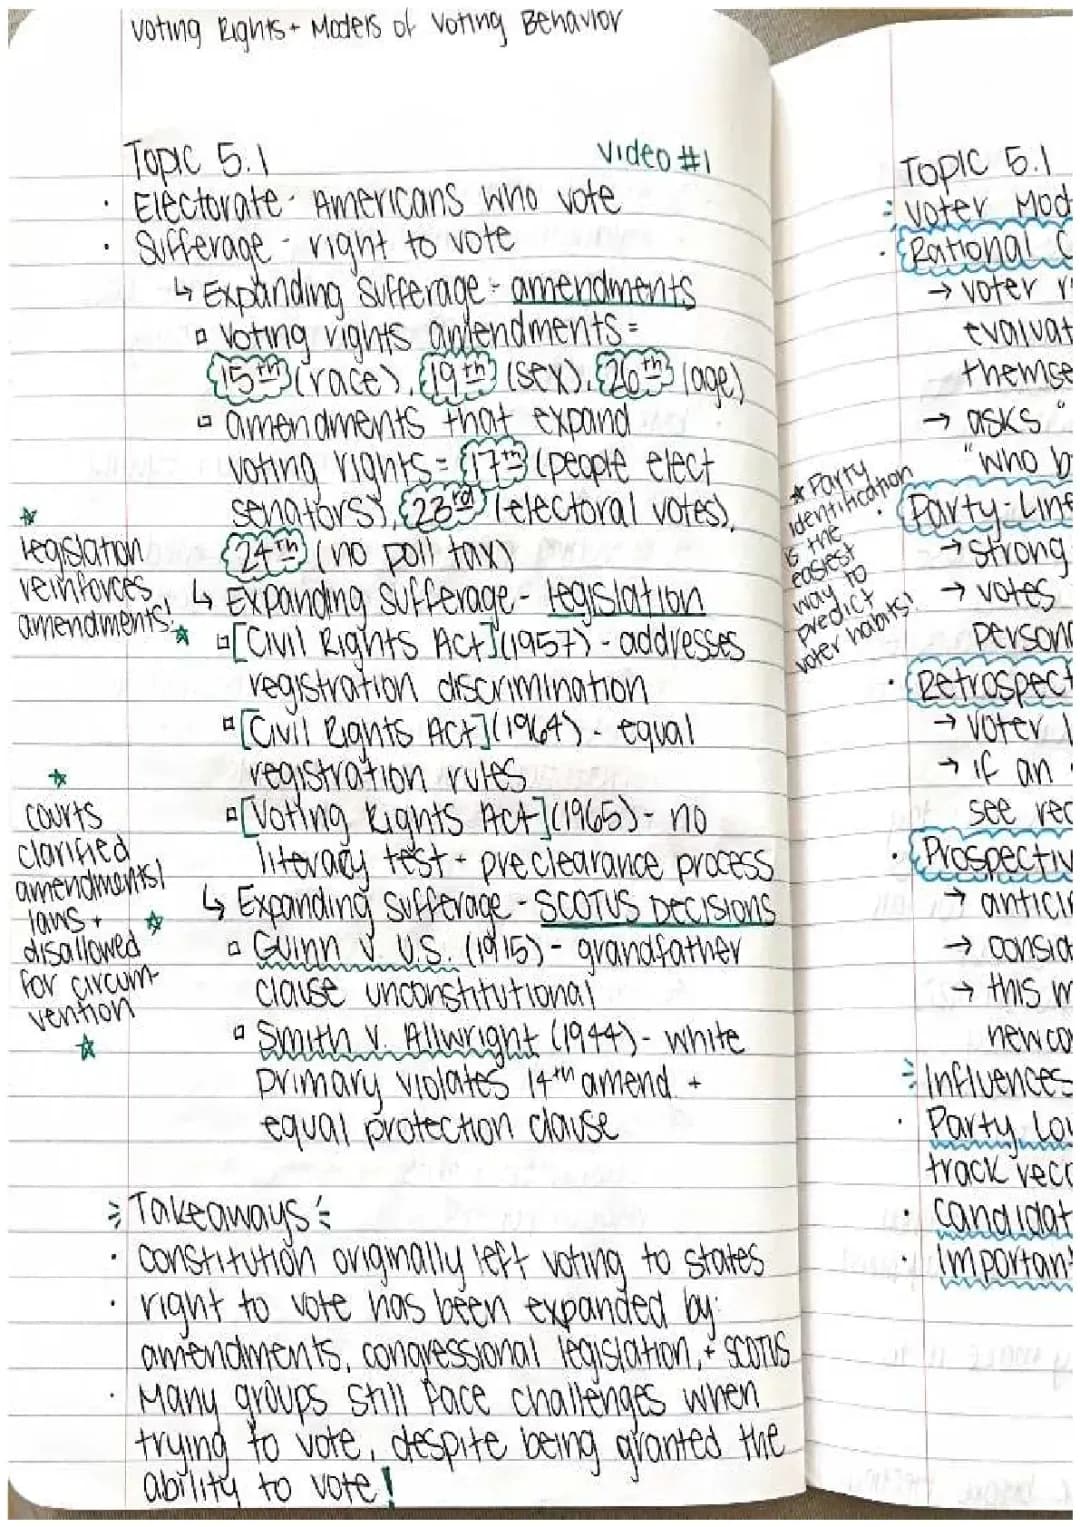 Voting Rights + Models of Voting Behavior
Topic 5.1 Video #1
· Electorate - Americans who vote
· Sufferage - right to vote
↳ Expanding Sufferage - amendments
▫ Voting rights amendments =
15th (race), 19th (sex), 26th (age)
▫ amendments that expand
voting rights = 17th (people elect
senators), 23rd (electoral votes),
24th (no poll tax)
↳ Expanding Sufferage - legislation
▫ [Civil Rights Act] (1957) - addresses
registration discrimination
▫ [Civil Rights Act] (1964) - equal
registration rules
▫ [Voting Rights Act] (1965) - no
literacy test + preclearance process
↳ Expanding Sufferage - SCOTUS Decisions
▫ Guinn v. U.S. (1915) - grandfather
clause unconstitutional
▫ Smith v. Allwright (1944) - white
primary violates 14th amend. +
equal protection clause
☆
legislation
reinforces
amendments! ☆
☆
courts
clarified
amendments/
laws + ☆
disallowed
for circum-
vention
☆
Takeaways
· constitution originally left voting to states
· right to vote has been expanded by:
amendments, congressional legislation, + SCOTUS
· Many groups still face challenges when
trying to vote, despite being granted the
ability to vote!
Topic 5.1
Voter Mod
· Rational C
→ voter r
evaluat
themse
→ asks "
"who b
★ Party
identification
is the
easiest
way to
predict
voter habits!
· Party-Line
→ strong
→ votes
person
· Retrospect
→ voter l
→ if an
see rec
· Prospectiv
→ antici
→ consid
→ this m
new co
Influences
· Party Lo
track reco
· Candidat
· Important